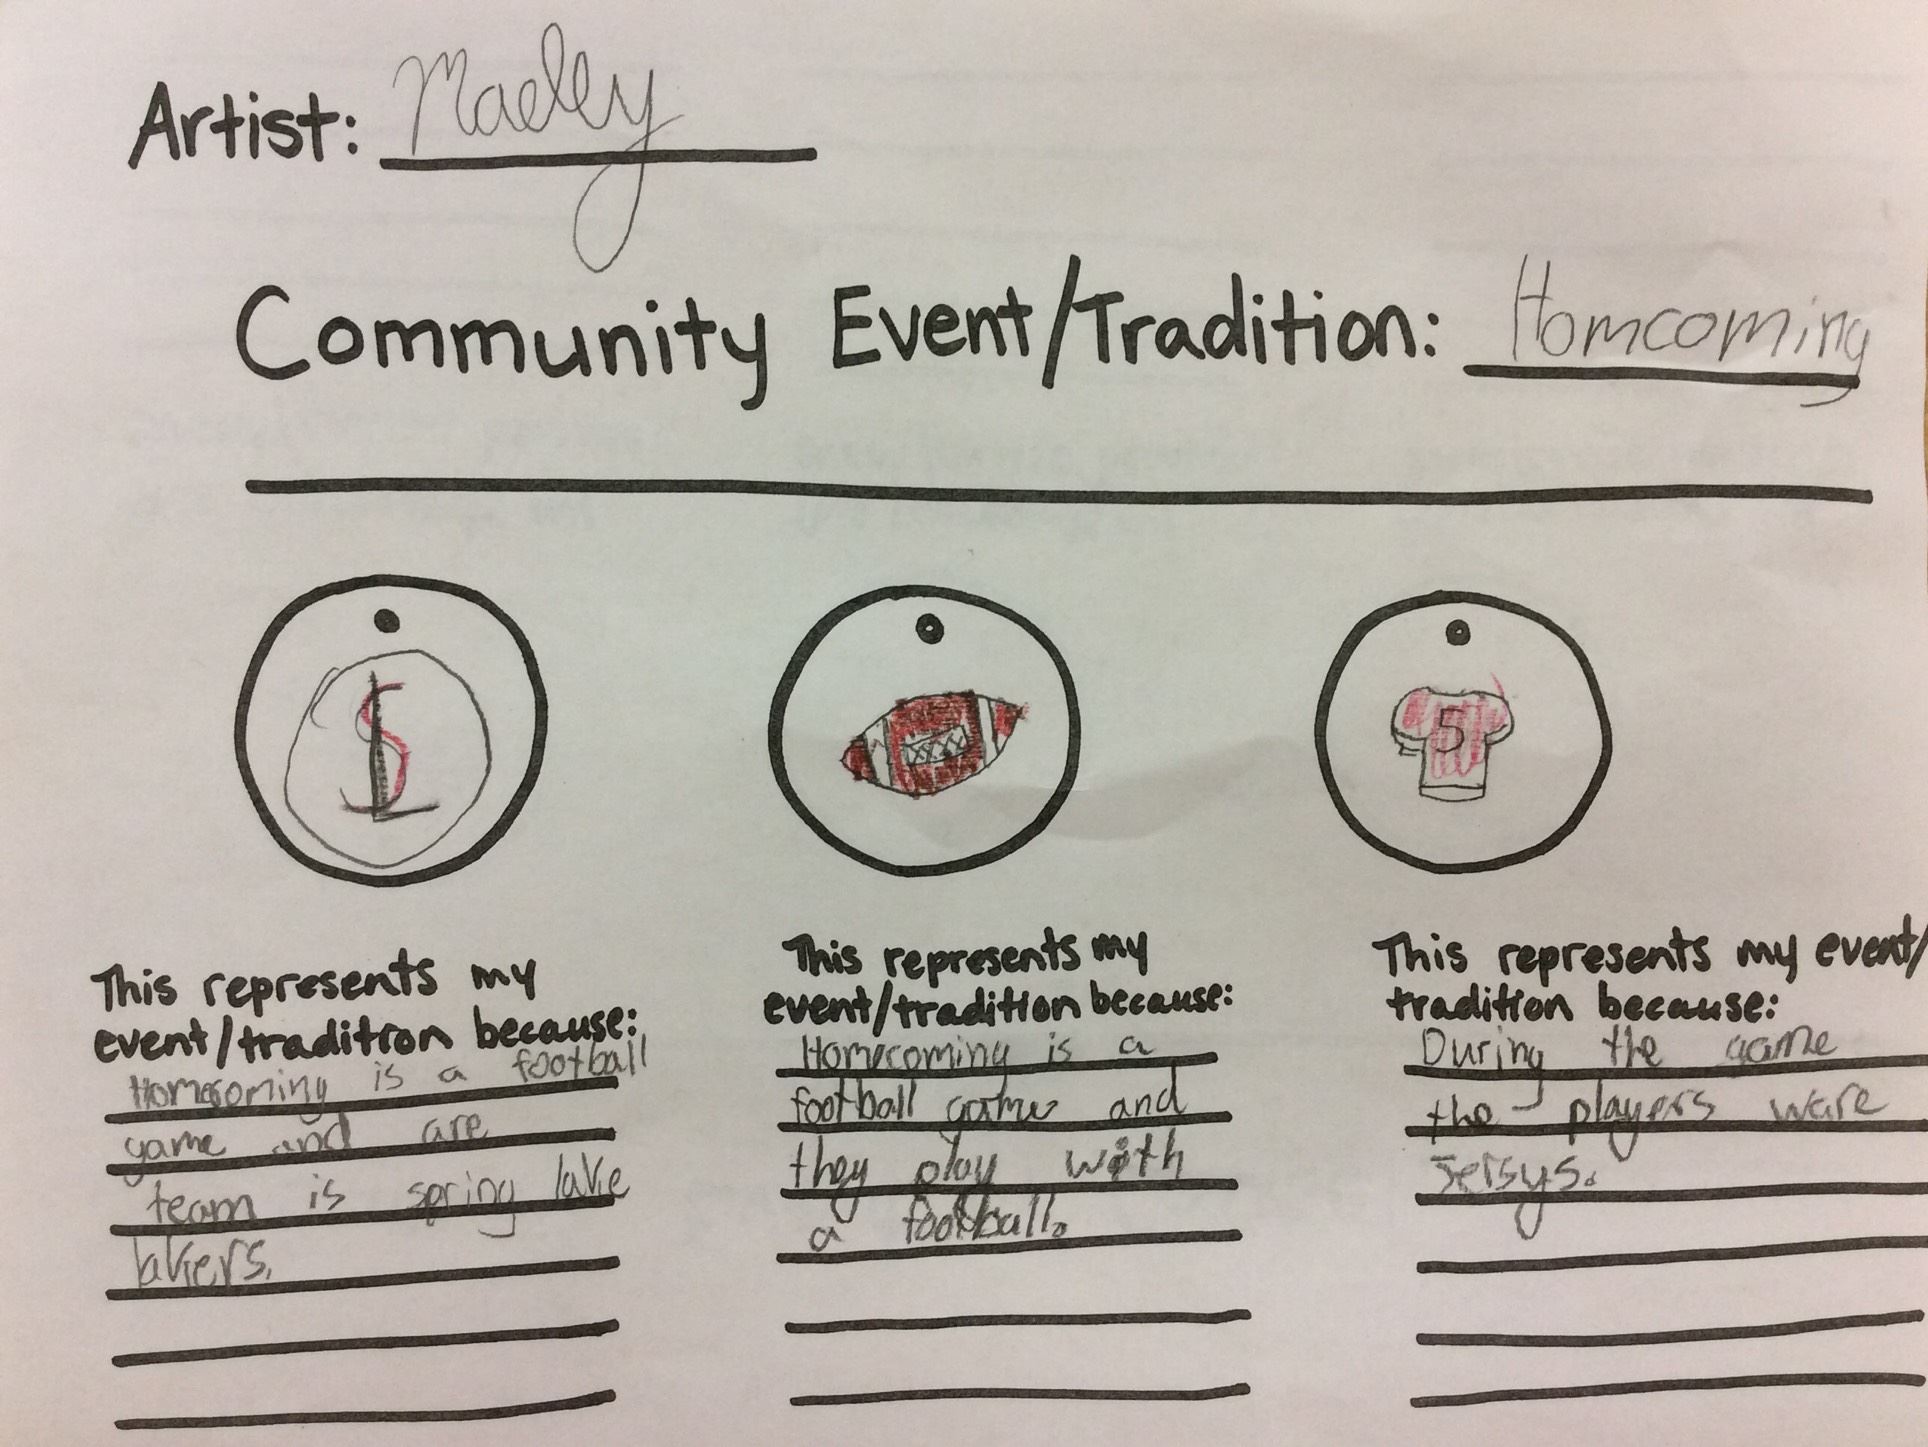 Artist: Maelly
Community Event/Tradition: Homcoming
SL
5
This represents my
event/tradition because:
Homecoming is a football
game and are
team is spring lake
lakers.
This represents my
event/tradition because:
Homecoming is a
football game and
they play with
a football.
This represents my event/
tradition because:
During the game
the players ware
Jersys.